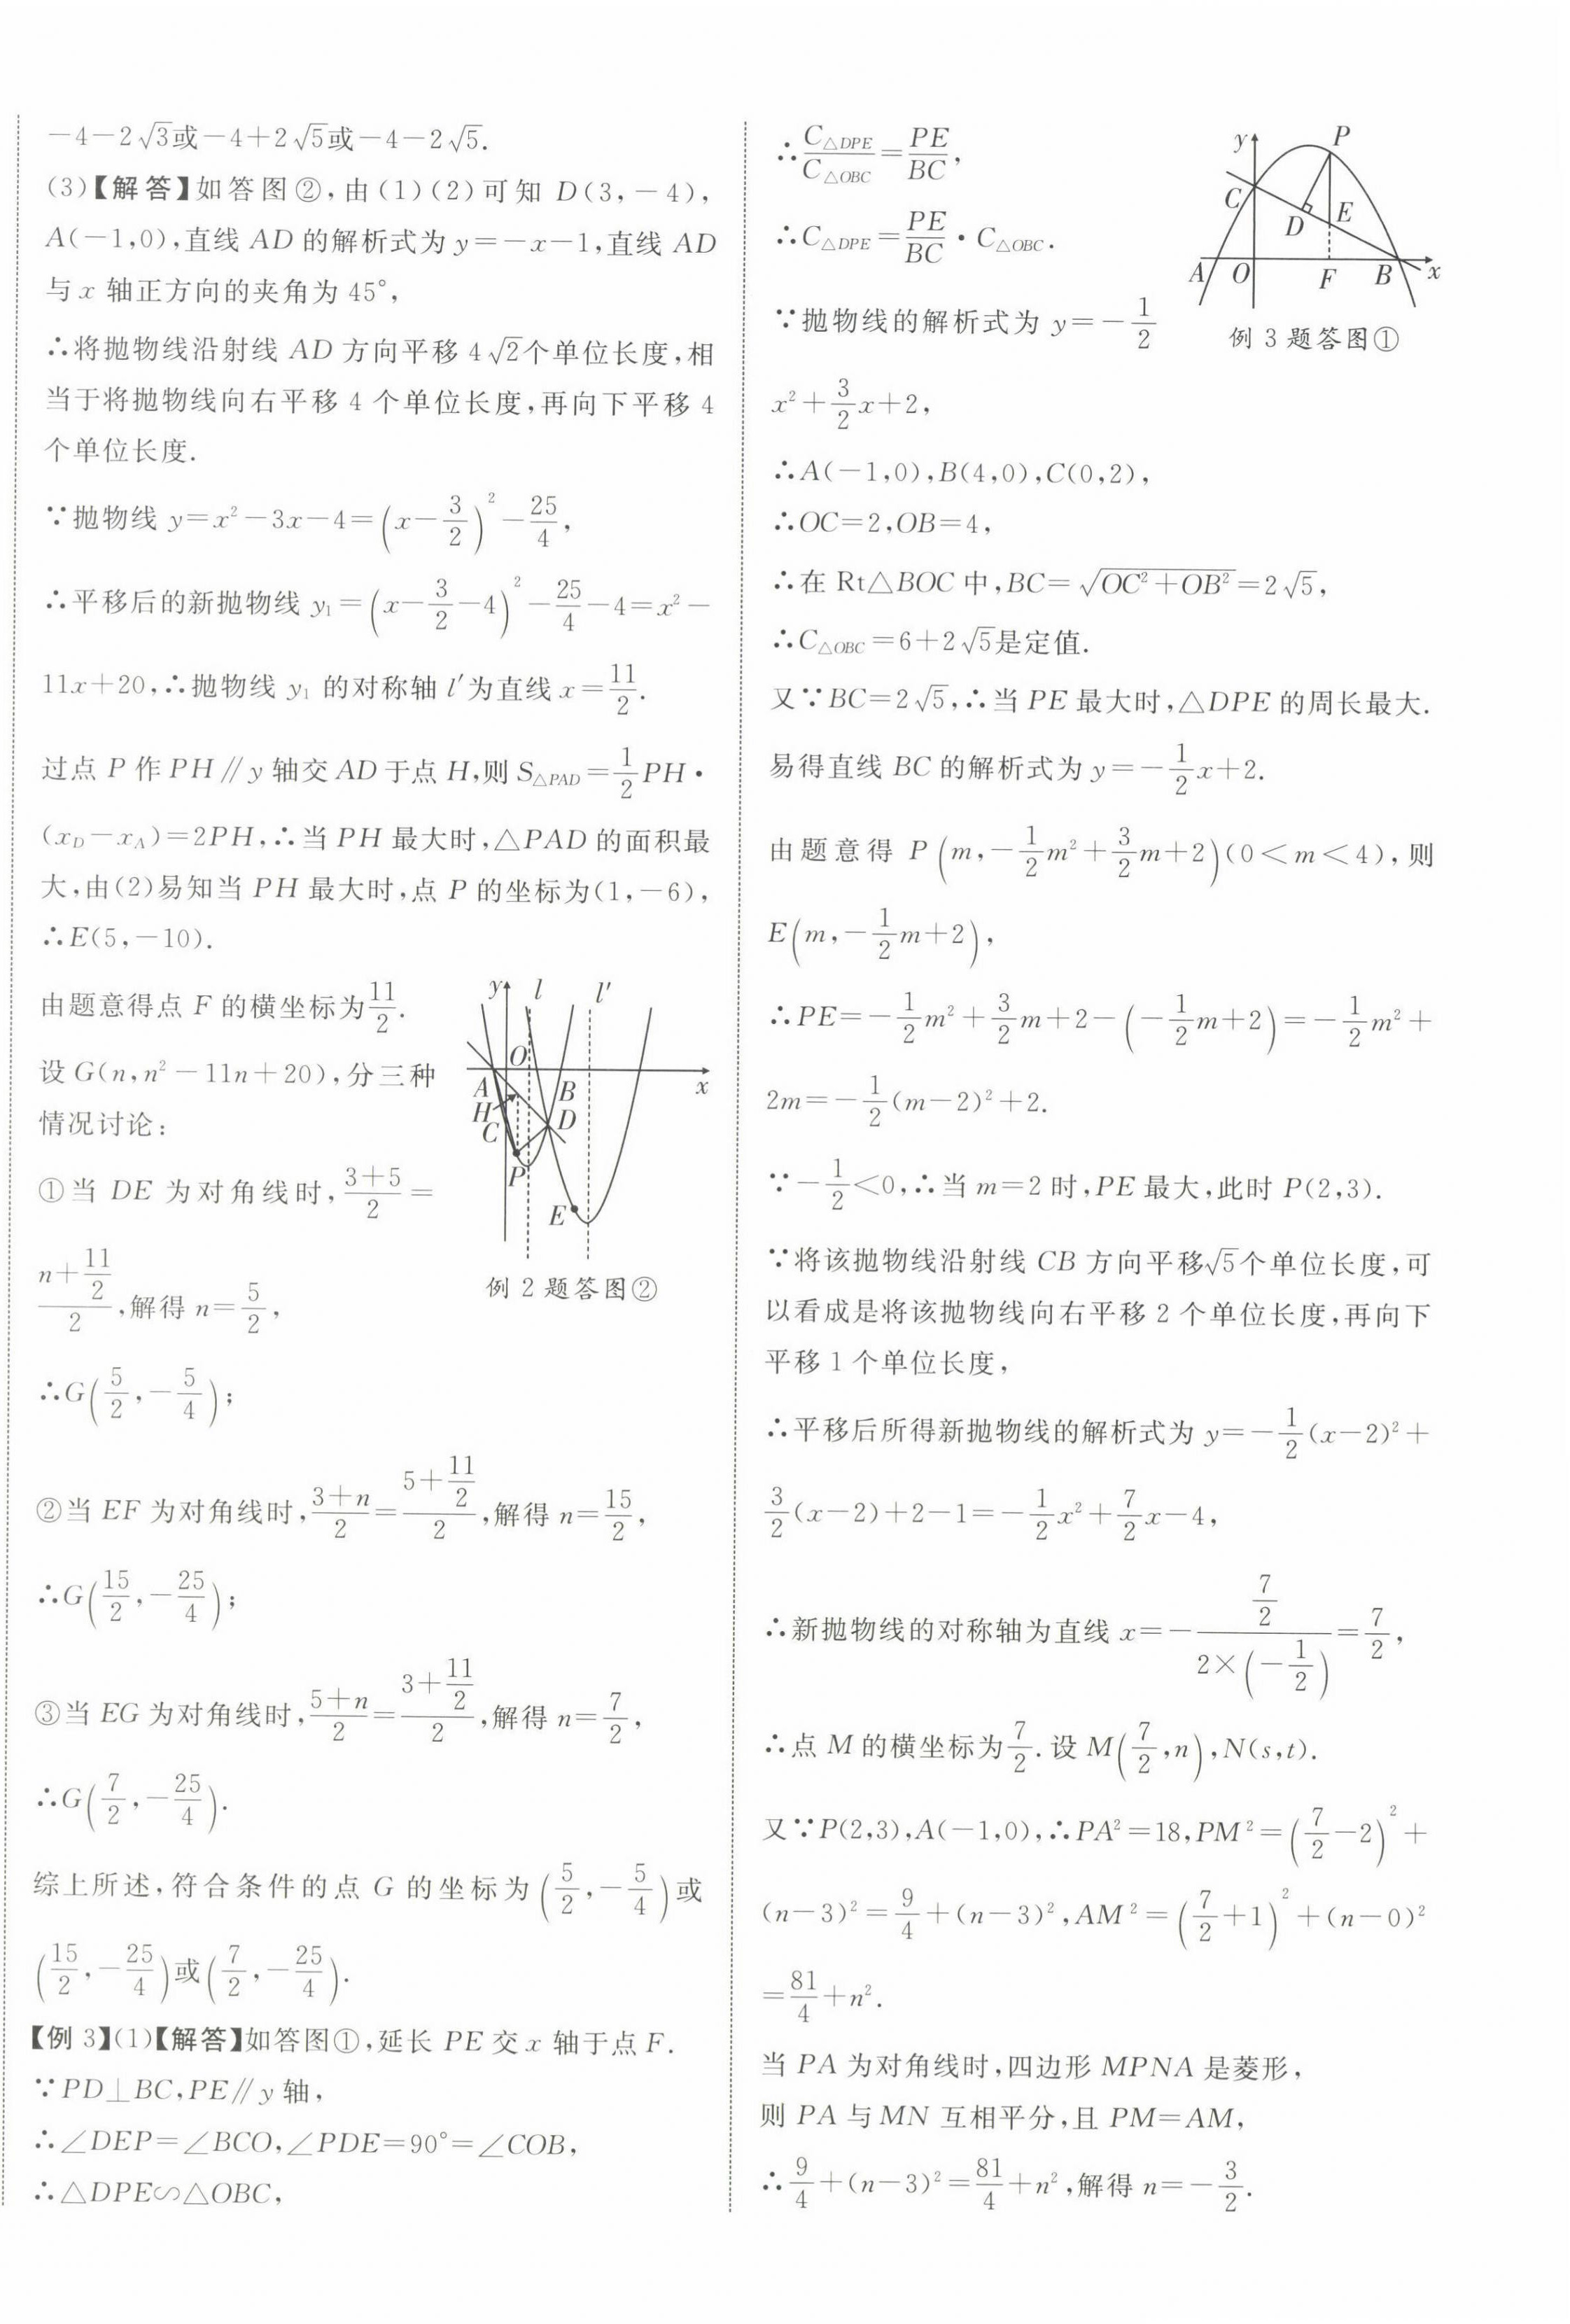 -4-2√3或-4+2√5或-4-2√5.
(3)【解答】如答图②,由(1)(2)可知 D(3,-4),
A(-1,0),直线 AD 的解析式为 y=-x-1,直线 AD
与 x 轴正方向的夹角为 45°,
∴将抛物线沿射线 AD 方向平移 4√2个单位长度,相
当于将抛物线向右平移 4 个单位长度,再向下平移 4
个单位长度.
∵抛物线 y=x²-3x-4=(x-3/2)²-25/4,
∴平移后的新抛物线 y₁=(x-3/2-4)²-25/4-4=x²-
11x+20,∴抛物线 y₁ 的对称轴 l′为直线 x=11/2.
过点 P 作 PH∥y 轴交 AD 于点 H,则 S△PAD=1/2PH·
(x_D-x_A)=2PH,∴当 PH 最大时,△PAD 的面积最
大,由(2)易知当 PH 最大时,点 P 的坐标为(1,-6),
∴E(5,-10).
由题意得点 F 的横坐标为11/2.
设 G(n,n²-11n+20),分三种
情况讨论:
①当 DE 为对角线时,(3+5)/2=
(n+11/2)/2,解得 n=5/2,
∴G(5/2,-5/4);
y l l′
O
A B x
H D
C
P
E
例 2 题答图②
②当 EF 为对角线时,(3+n)/2=(5+11/2)/2,解得 n=15/2,
∴G(15/2,-25/4);
③当 EG 为对角线时,(5+n)/2=(3+11/2)/2,解得 n=7/2,
∴G(7/2,-25/4).
综上所述,符合条件的点 G 的坐标为(5/2,-5/4)或
(15/2,-25/4)或(7/2,-25/4).
【例 3】(1)【解答】如答图①,延长 PE 交 x 轴于点 F.
∵PD⊥BC,PE∥y 轴,
∴∠DEP=∠BCO,∠PDE=90°=∠COB,
∴△DPE∽△OBC,
∴C△DPE/C△OBC=PE/BC,
∴C△DPE=PE/BC·C△OBC.
y P
C
D E
A O F B x
例 3 题答图①
∵抛物线的解析式为 y=-1/2
x²+3/2x+2,
∴A(-1,0),B(4,0),C(0,2),
∴OC=2,OB=4,
∴在 Rt△BOC 中,BC=√(OC²+OB²)=2√5,
∴C△OBC=6+2√5是定值.
又∵BC=2√5,∴当 PE 最大时,△DPE 的周长最大.
易得直线 BC 的解析式为 y=-1/2x+2.
由题意得 P(m,-1/2m²+3/2m+2)(0<m<4),则
E(m,-1/2m+2),
∴PE=-1/2m²+3/2m+2-(-1/2m+2)=-1/2m²+
2m=-1/2(m-2)²+2.
∵-1/2<0,∴当 m=2 时,PE 最大,此时 P(2,3).
∵将该抛物线沿射线 CB 方向平移√5个单位长度,可
以看成是将该抛物线向右平移 2 个单位长度,再向下
平移 1 个单位长度,
∴平移后所得新抛物线的解析式为 y=-1/2(x-2)²+
3/2(x-2)+2-1=-1/2x²+7/2x-4,
∴新抛物线的对称轴为直线 x=-(7/2)/(2×(-1/2))=7/2,
∴点 M 的横坐标为7/2.设 M(7/2,n),N(s,t).
又∵P(2,3),A(-1,0),∴PA²=18,PM²=(7/2-2)²+
(n-3)²=9/4+(n-3)²,AM²=(7/2+1)²+(n-0)²
=81/4+n².
当 PA 为对角线时,四边形 MPNA 是菱形,
则 PA 与 MN 互相平分,且 PM=AM,
∴9/4+(n-3)²=81/4+n²,解得 n=-3/2.